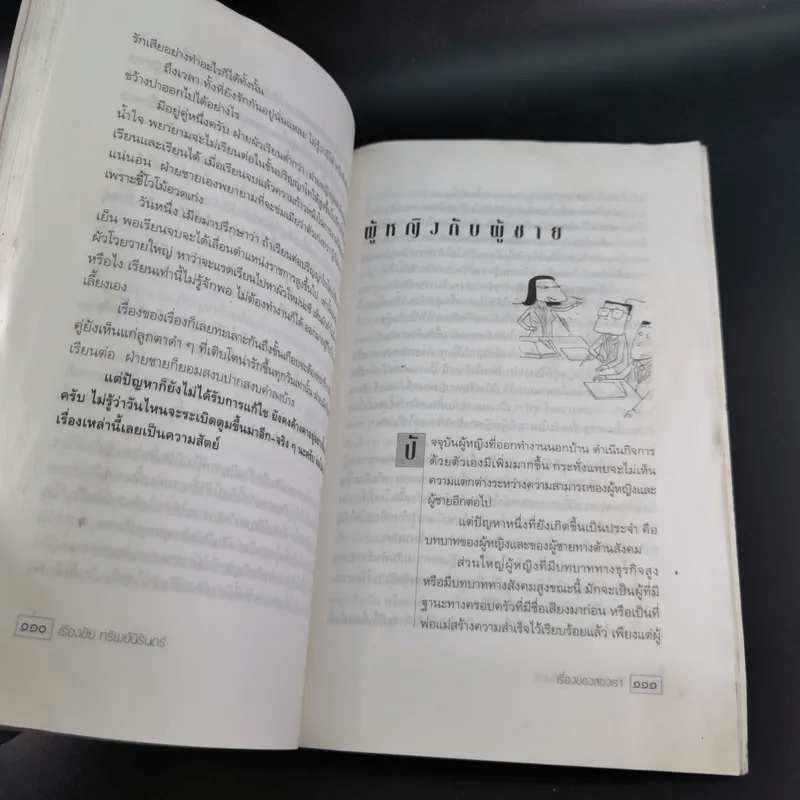 รักเสียอย่างทำอะไรก็ได้ทั้งนั้น
ถึงเวลา ทั้งที่ยังรักกันอยู่นั่นแหละ ไม่รู้
ขว้างปาออกไปได้อย่างไร
มีอยู่คู่หนึ่งครับ ฝ่ายผัวเรียนต่ำกว่า
น้ำใจ พยายามจะไม่เรียนต่อในชั้นปริญญาโท
เรียนและเรียนได้ เมื่อเรียนจบแล้วความก้าวหน้า
แน่นอน ฝ่ายชายเองพยายามที่จะข่มเมียว่า
เพราะขี้โวโม้อวดเก่ง
วันหนึ่ง เมียมาปรึกษาว่า ถ้าเรียนต่อปริญญาโท
เย็น พอเรียนจบจะได้เลื่อนตำแหน่งราชการสูงขึ้นไป
ผัวโวยวายใหญ่ หาว่าจะแรดเรียนไปหาผัวใหม่น่ะซิ
หรือไง เรียนเท่านี้ไม่รู้จักพอ ไม่ต้องทำงานก็ได้
เลี้ยงเอง
เรื่องของเรื่องก็เลยทะเลาะกันถึงขั้นเกือบจะต้อง
คู่ยังเห็นแก่ลูกตาดำ ๆ ที่เติบโตน่ารักขึ้นทุกวันเท่านั้น
เรียนต่อ ฝ่ายชายก็ยอมสงบปากสงบคำลงบ้าง
แต่ปัญหาก็ยังไม่ได้รับการแก้ไข ยังคงค้างคา
ครับ ไม่รู้ว่าวันไหนจะระเบิดตูมขึ้นมาอีก-จริง ๆ นะครับ
เรื่องเหล่านี้เลยเป็นความสัตย์
๑๑๐ เรืองชัย ทรัพย์นิรันดร์
ผู้หญิงกับผู้ชาย
ปัจจุบันผู้หญิงที่ออกทำงานนอกบ้าน ดำเนินกิจการ
ด้วยตัวเองมีเพิ่มมากขึ้น กระทั่งแทยจะไม่เห็น
ความแตกต่างระหว่างความสามารถของผู้หญิงและ
ผู้ชายอีกต่อไป
แต่ปัญหาหนึ่งที่ยังเกิดขึ้นเป็นประจำ คือ
บทบาทของผู้หญิงและของผู้ชายทางด้านสังคม
ส่วนใหญ่ผู้หญิงที่มีบทบาททางธุรกิจสูง
หรือมีบทบาททางสังคมสูงขณะนี้ มักจะเป็นผู้ที่มี
ฐานะทางครอบครัวที่มีชื่อเสียงมาก่อน หรือเป็นที่
พ่อแม่สร้างความสำเร็จไว้เรียบร้อยแล้ว เพียงแต่ผู้
เรื่องของสองเรา ๑๑๑